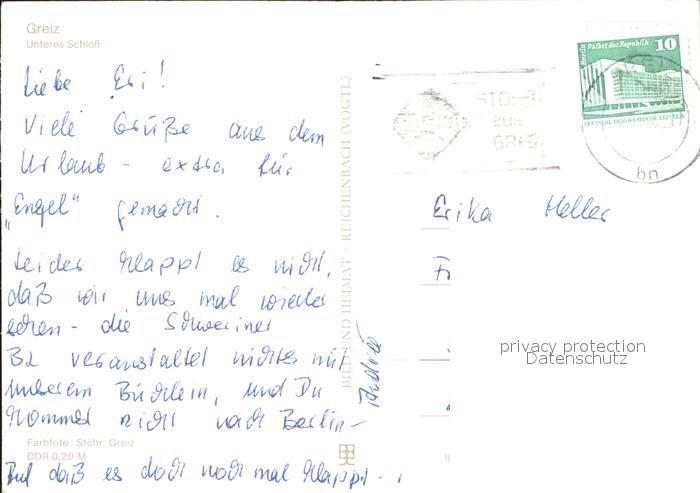 Greiz
Unteres Schloß
Liebe Eri!
Viele Grüße aus dem
Urlaub - extra für
"Engel" gemacht.
Leider klappt es nicht,
daß wir uns mal wieder
sehen - die Schweriner
BL veranstaltet nichts mit
unserem Büchlein, und Du
kommst nicht nach Berlin -
Auf daß es doch noch mal klappt -
André
Farbfoto: Stöhr, Greiz
DDR 0,20 M
BILD UND HEIMAT · REICHENBACH (VOGTL)
Berlin Palast der Republik 10
DEUTSCHE DEMOKRATISCHE REPUBLIK
aus
bn
Erika Heller
privacy protection
Datenschutz